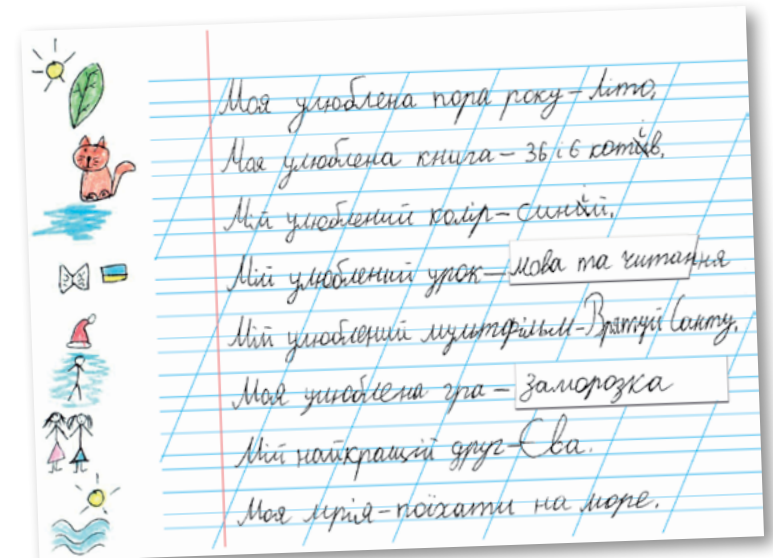 Моя улюблена пора року – літо.
Моя улюблена книга – 36 і 6 котів.
Мій улюблений колір – синій.
Мій улюблений урок – мова та читання
Мій улюблений мультфільм – Врятуй Санту.
Моя улюблена гра – заморозка
Мій найкращий друг – Єва.
Моя мрія – поїхати на море.